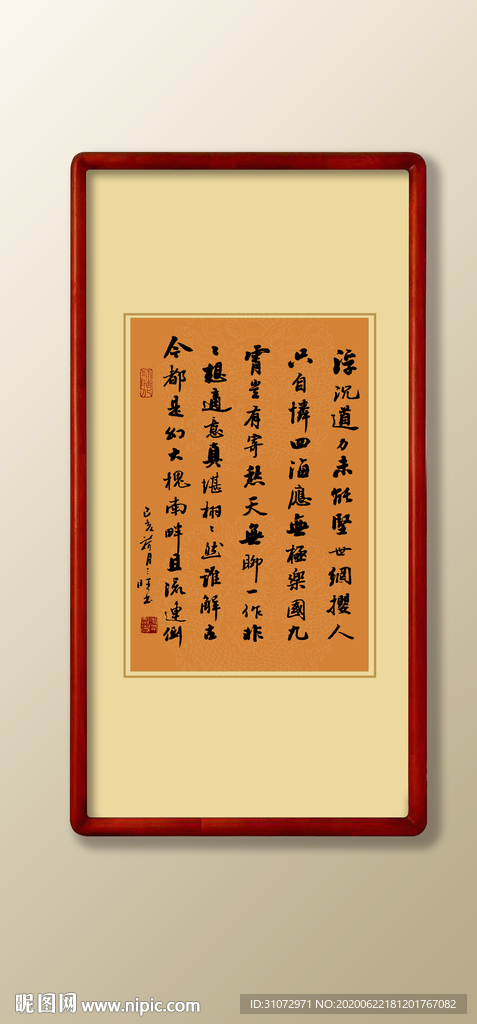 浮沉道力未能堅世網攖人
只自憐四海應無極樂國九
霄豈有寄愁天無聊一作非
〻想適意真堪栩〻然誰解古
今都是幻大槐南畔且流連
己亥荷月
昵图网 www.nipic.com
ID:31072971 NO:20200622181201767082